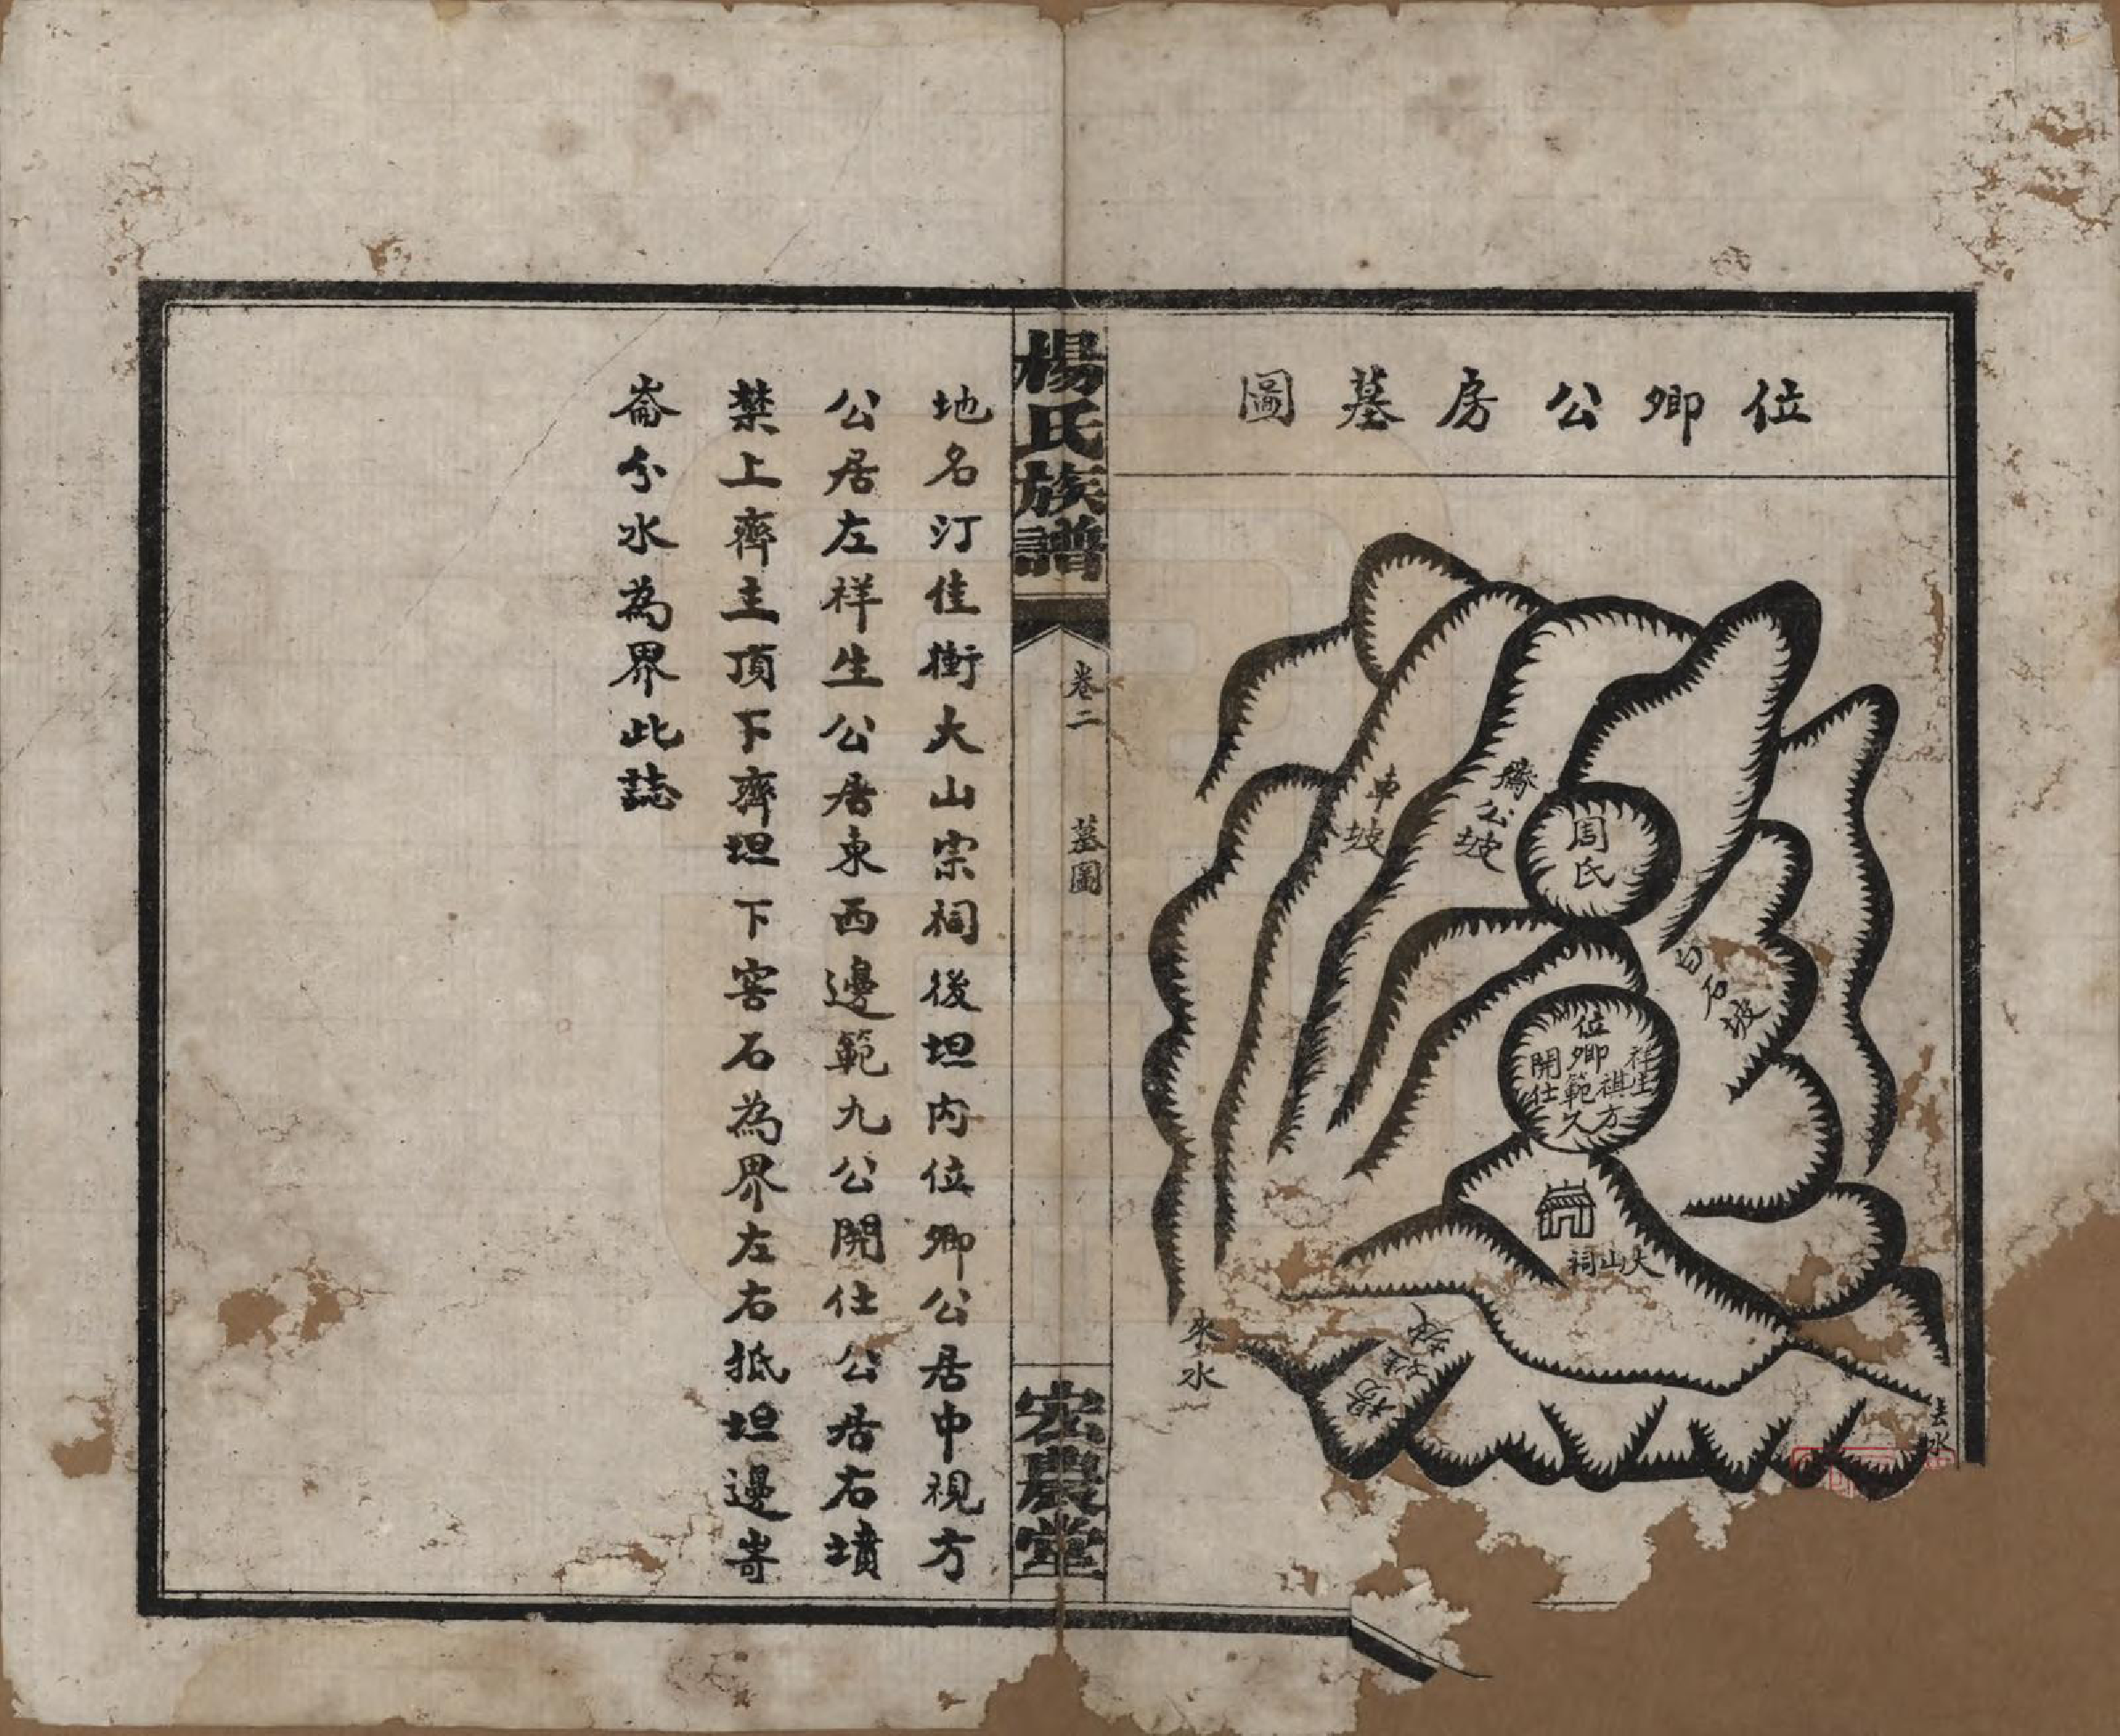 位卿公房墓圖
車坡
公坡
周氏
白石坡
位卿
祥生
祺方
範久
開仕
大山祠
來水
去水
楊氏族譜
卷二
墓圖
宏農堂
地名汀佳衝大山宗祠後坦內位卿公居中視方
公居左祥生公居東西邊範九公開仕公居右墳
禁上齊主頂下齊坦下窖石為界左右抵坦邊岢
崙分水為界此誌